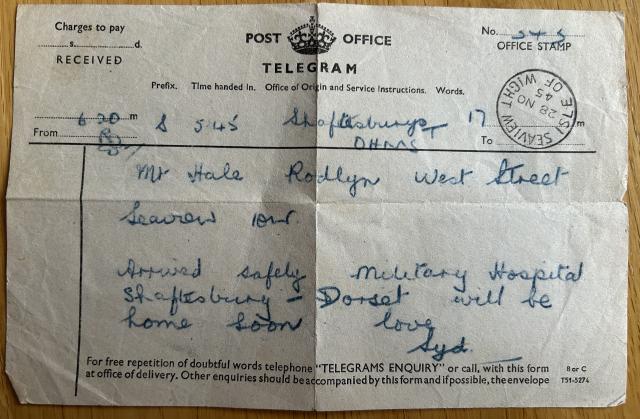 Charges to pay
s. d.
RECEIVED
POST OFFICE
TELEGRAM
No. 545
OFFICE STAMP
Prefix. Time handed in. Office of Origin and Service Instructions. Words.
SEAVIEW ISLE OF WIGHT
28 NO
45
6 30 m
From
S 545 Shaftesbury 17
OHMS
To m
Mr Hale Rodlyn West Street
Seaview IOW.
Arrived safely Military Hospital
Shaftesbury - Dorset will be
home soon love
Syd.
For free repetition of doubtful words telephone "TELEGRAMS ENQUIRY" or call, with this form
at office of delivery. Other enquiries should be accompanied by this form and if possible, the envelope
B or C
T51-5274